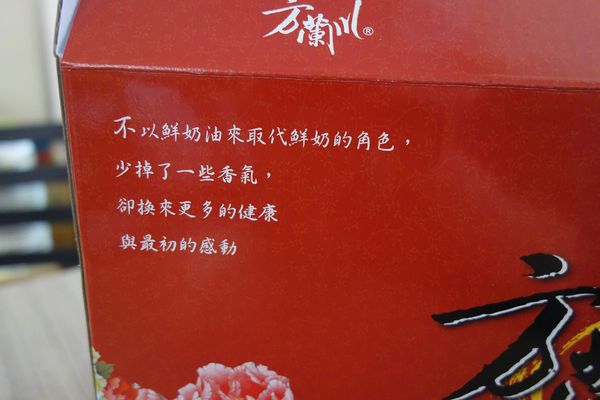 方蘭川®
不以鮮奶油來取代鮮奶的角色，
少掉了一些香氣，
卻換來更多的健康
與最初的感動
方